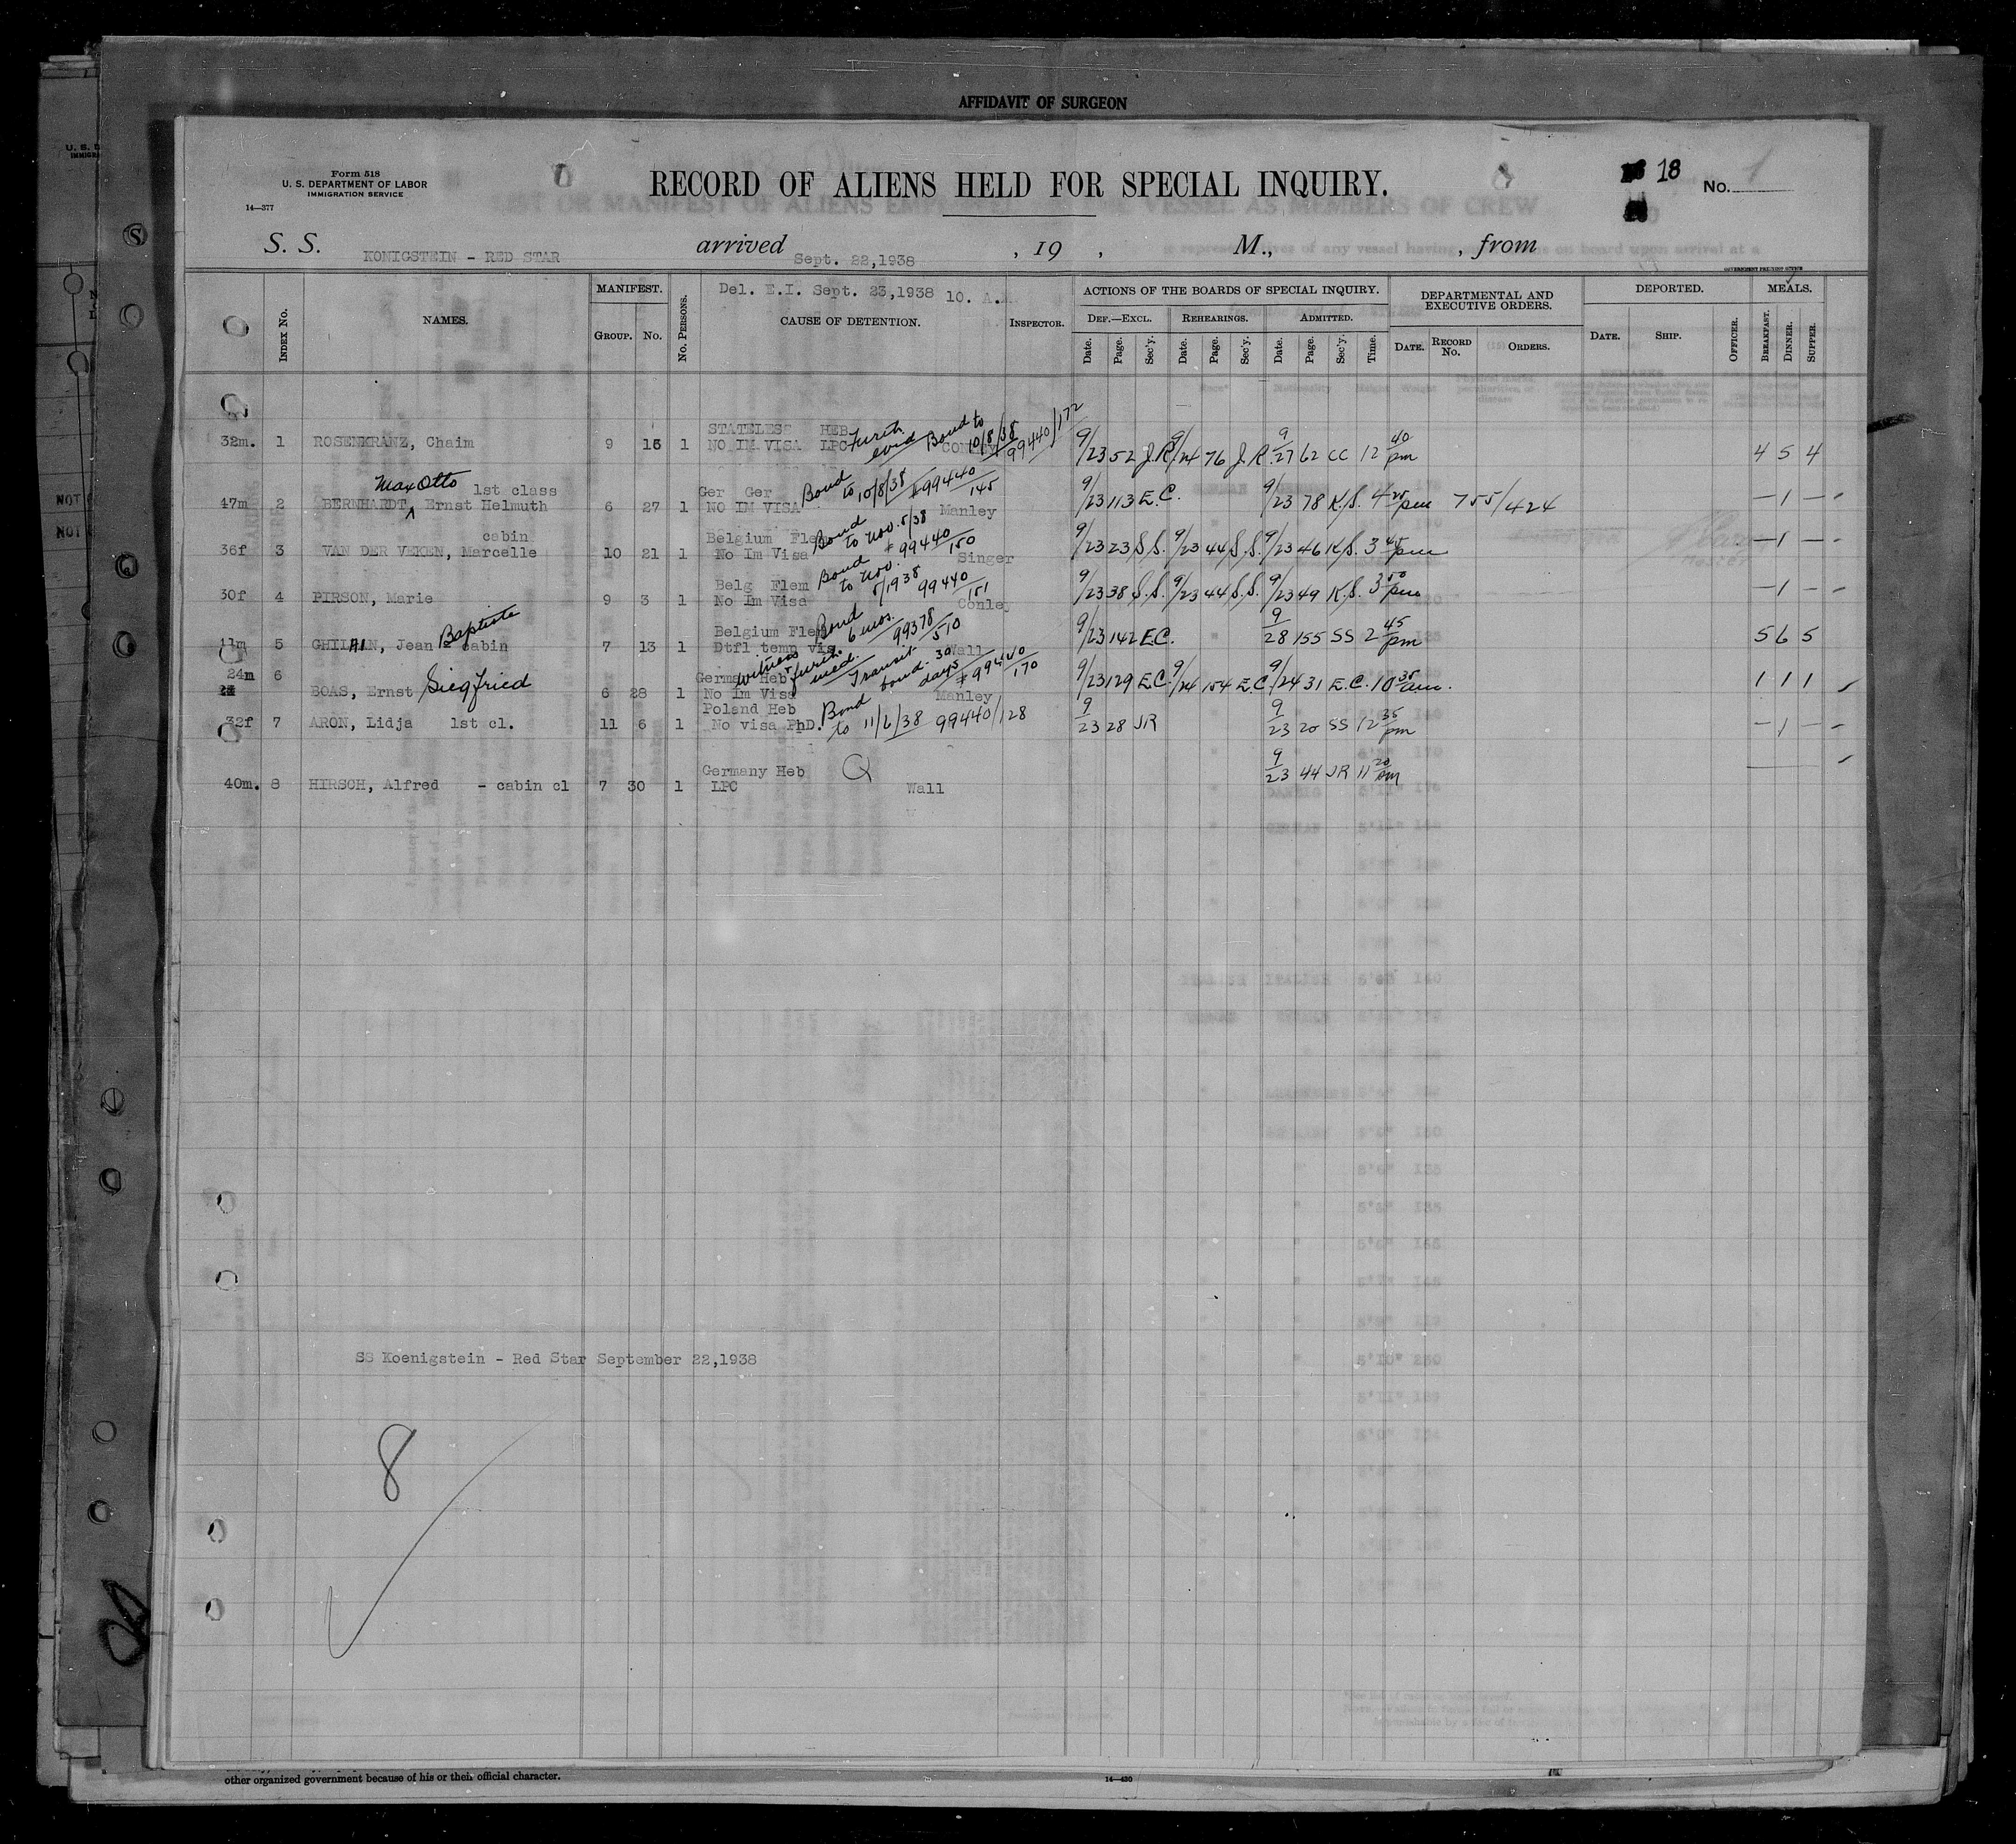 AFFIDAVIT OF SURGEON
Form 518
U. S. DEPARTMENT OF LABOR
IMMIGRATION SERVICE
14—377
RECORD OF ALIENS HELD FOR SPECIAL INQUIRY.
18
No. 1
S. S. KONIGSTEIN - RED STAR arrived Sept. 22,1938 , 19 , M., , from
GOVERNMENT PRINTING OFFICE
Index No. NAMES. MANIFEST. Group. No. No. Persons. Del. E.I. Sept. 23,1938 10. A.M. CAUSE OF DETENTION. Inspector. ACTIONS OF THE BOARDS OF SPECIAL INQUIRY. DEPARTMENTAL AND EXECUTIVE ORDERS. DEPORTED. MEALS.
Def.—Excl. Rehearings. Admitted.
Date. Page. Sec'y. Date. Page. Sec'y. Date. Page. Sec'y. Time. Date. Record No. Orders. Date. Ship. Officer. Breakfast. Dinner. Supper.
STATELESS HEB furth. evid Bond to 10/8/38 99440/172
32m. 1 ROSENKRANZ, Chaim 9 16 1 NO IM VISA LPC Conley 9/23 52 J.R. 9/24 76 J.R. 9/27 62 CC 12 40 pm 4 5 4
Max Otto 1st class Ger Ger Bond to 10/8/38 #99440/145
47m 2 BERNHARDT, Ernst Helmuth 6 27 1 NO IM VISA Manley 9/23 113 E.C. 9/23 78 K.S. 4 25 pm 755/424 — 1 —
cabin Belgium Flem Bond to Nov. 5/38 #99440/150
36f 3 VAN DER VEKEN, Marcelle 10 21 1 No Im Visa Singer 9/23 23 S.S. 9/23 44 S.S. 9/23 46 K.S. 3 45 pm — 1 —
Belg Flem Bond to Nov. 5/1938 99440/151
30f 4 PIRSON, Marie 9 3 1 No Im Visa Conley 9/23 38 S.S. 9/23 44 S.S. 9/23 49 K.S. 3 50 pm — 1 —
Baptiste Belgium Flem Bond 6 mos. 99378/510
11m 5 Jean - cabin 7 13 1 Dtfl temp vis. Wall 9/23 142 E.C. 9/28 155 SS 2 45 pm 5 6 5
24m 6 German Heb witness furth. Transit bond. 30 days #99440/170
BOAS, Ernst Siegfried 6 28 1 No Im Visa Manley 9/23 129 E.C. 9/24 154 E.C. 9/24 31 E.C. 10 35 am. 1 1 1
Poland Heb Bond to 11/6/38 99440/128
32f 7 ARON, Lidja 1st cl. 11 6 1 No visa PhD. 9/23 28 JR 9/23 20 SS 12 35 pm — 1 —
Germany Heb
40m. 8 HIRSCH, Alfred - cabin cl 7 30 1 LPC Wall 9/23 44 JR 11 20 am
SS Koenigstein - Red Star September 22,1938
8
other organized government because of his or their official character.
14—430